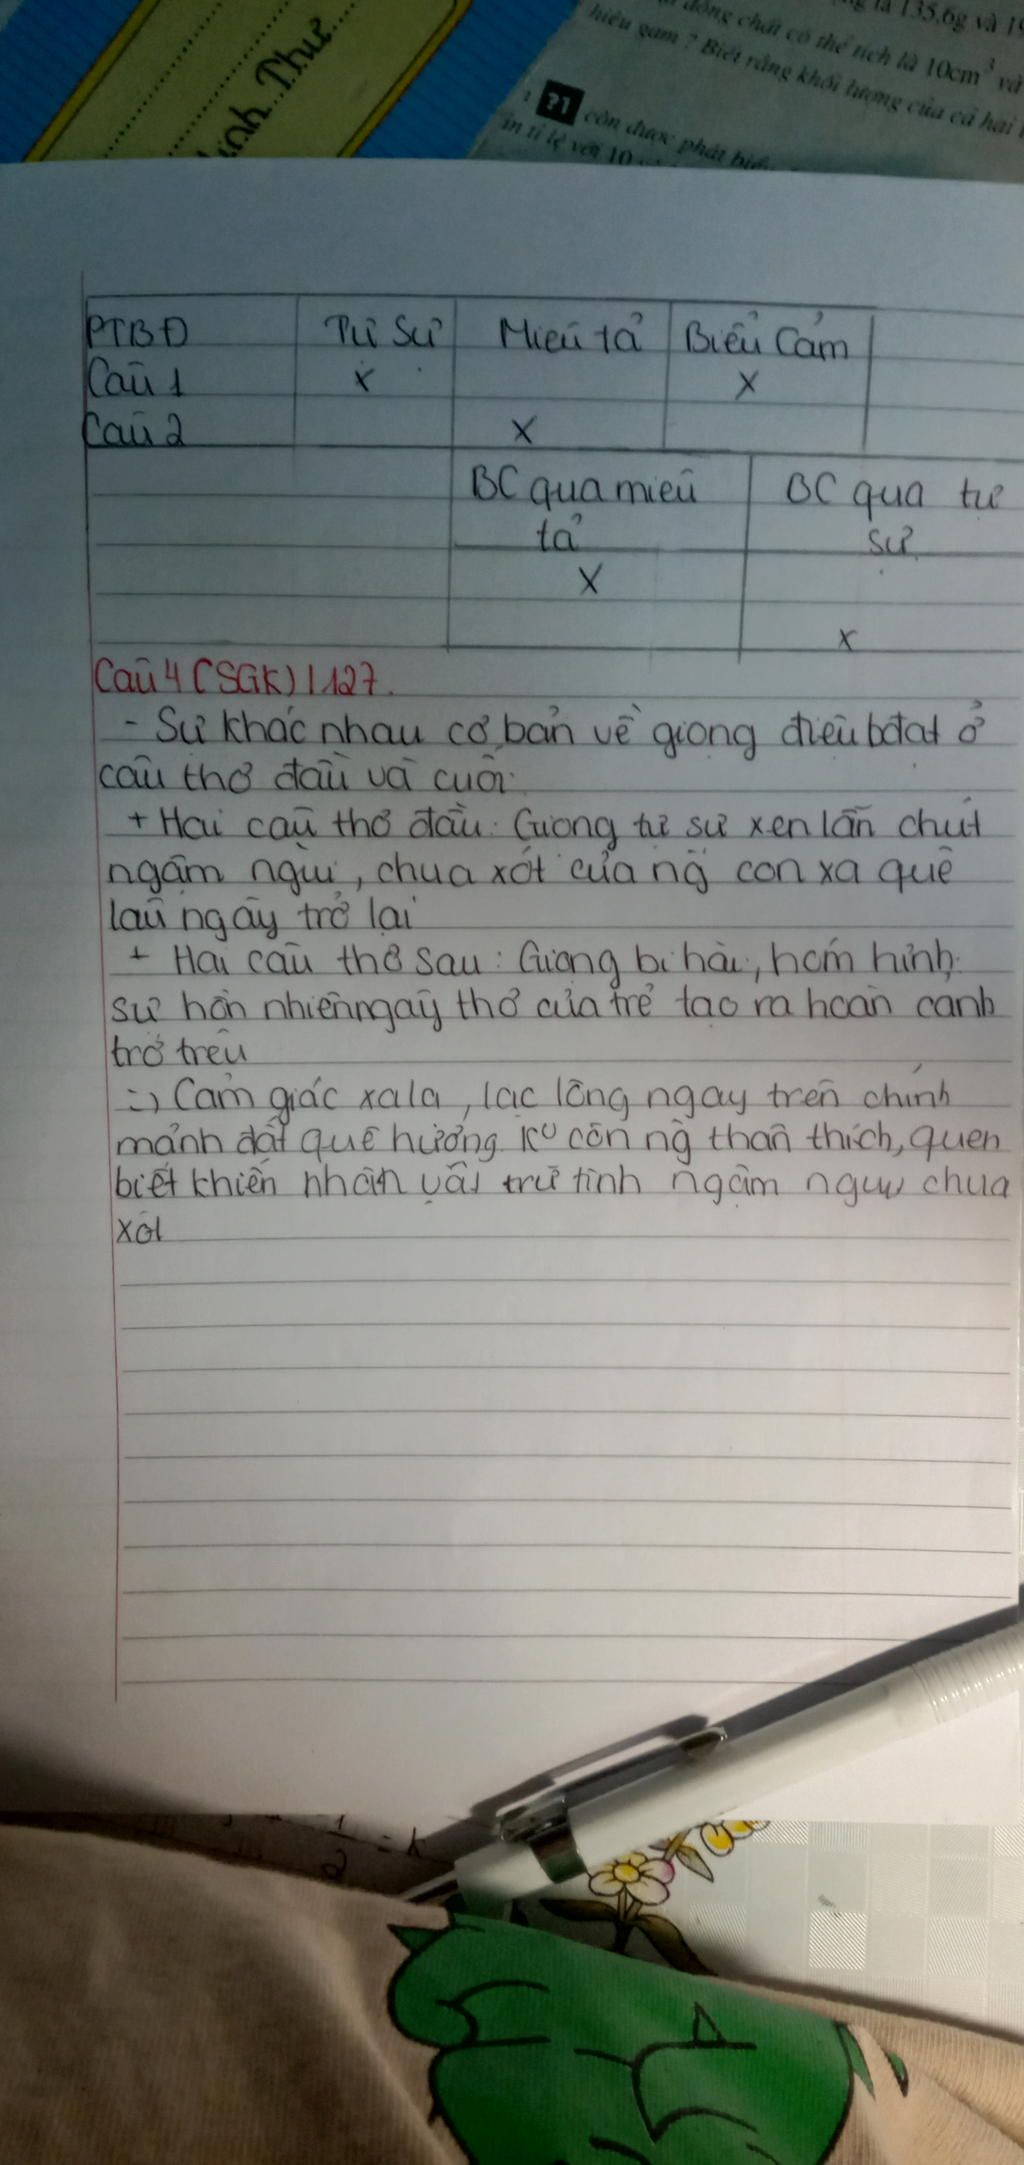 135,6g và
đồng chất có thể tích là 10cm³ và
hiêu gam ? Biết rằng khối lượng của cả hai
?1 còn được phát biểu
ỉn tỉ lệ với 10
Thư
PTBĐ Tự Sự Miêu tả Biểu Cảm
Câu 1 x x
Câu 2 x
BC qua miêu BC qua tự
tả sự
x
x
Câu 4 (SGK) / 127.
- Sự khác nhau cơ bản về giọng điệu bđạt ở
câu thơ đầu và cuối:
+ Hai câu thơ đầu: Giọng tự sự xen lẫn chút
ngậm ngùi, chua xót của ng̀ con xa quê
lâu ngày trở lại
+ Hai câu thơ sau: Giọng bi hài, hóm hỉnh:
sự hồn nhiên ngây thơ của trẻ tạo ra hoàn cảnh
trớ trêu
=> Cảm giác xa lạ, lạc lõng ngay trên chính
mảnh đất quê hương. K⁰ còn ng̀ thân thích, quen
biết khiến nhân vật trữ tình ngậm ngùi chua
xót
1
2 = k